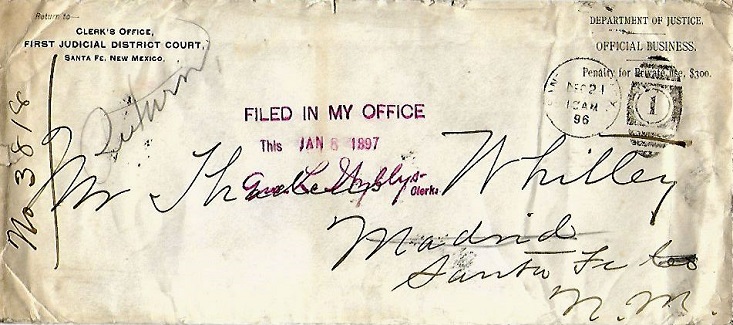 Return to—
CLERK'S OFFICE,
FIRST JUDICIAL DISTRICT COURT,
SANTA FE, NEW MEXICO.
DEPARTMENT OF JUSTICE,
OFFICIAL BUSINESS.
Penalty for Private Use, $300.
DEC 21
12 AM
96
1
Return
No 3818
FILED IN MY OFFICE
This JAN 6 1897
Clerk.
Mr. Whitley
Madrid
Santa Fe Co
N. M.